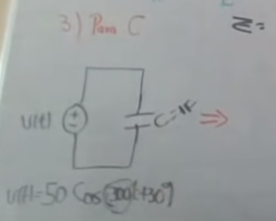 3) Para C
Z=
v(t)
C=1F
v(t)=50 Cos(300t+30°)